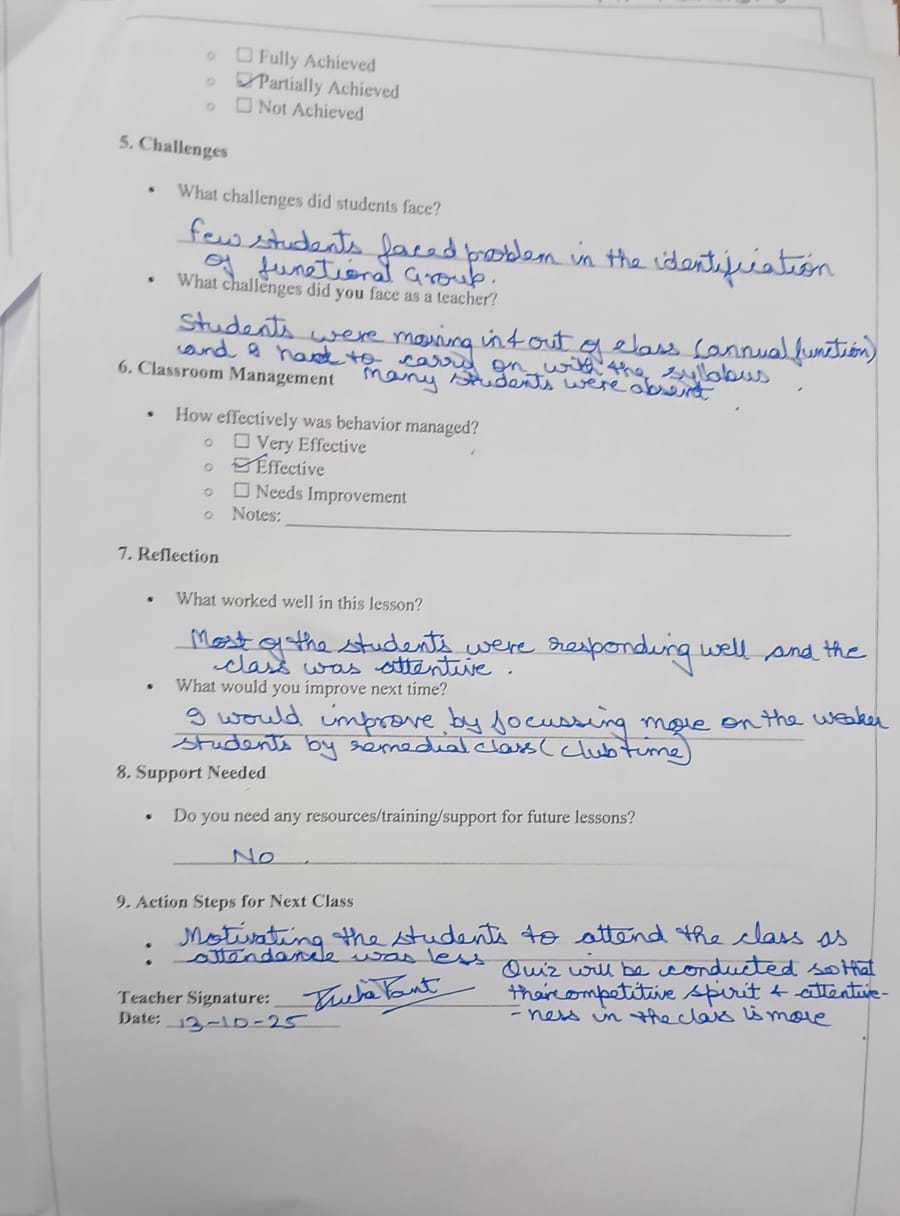 ☐ Fully Achieved
☑ Partially Achieved
☐ Not Achieved
5. Challenges
• What challenges did students face?
few students faced problem in the identification
of functional Group.
• What challenges did you face as a teacher?
Students were moving in & out of class (annual function)
and I had to carry on with the syllabus
many students were absent
6. Classroom Management
• How effectively was behavior managed?
☐ Very Effective
☑ Effective
☐ Needs Improvement
Notes:
7. Reflection
• What worked well in this lesson?
Most of the students were responding well and the
class was attentive.
• What would you improve next time?
I would improve by focussing more on the weaker
students by remedial class (club time)
8. Support Needed
• Do you need any resources/training/support for future lessons?
No.
9. Action Steps for Next Class
• Motivating the students to attend the class as
• attendance was less
Quiz will be conducted so that
their competitive spirit & attentive-
-ness in the class is more
Teacher Signature:
Date: 13-10-25